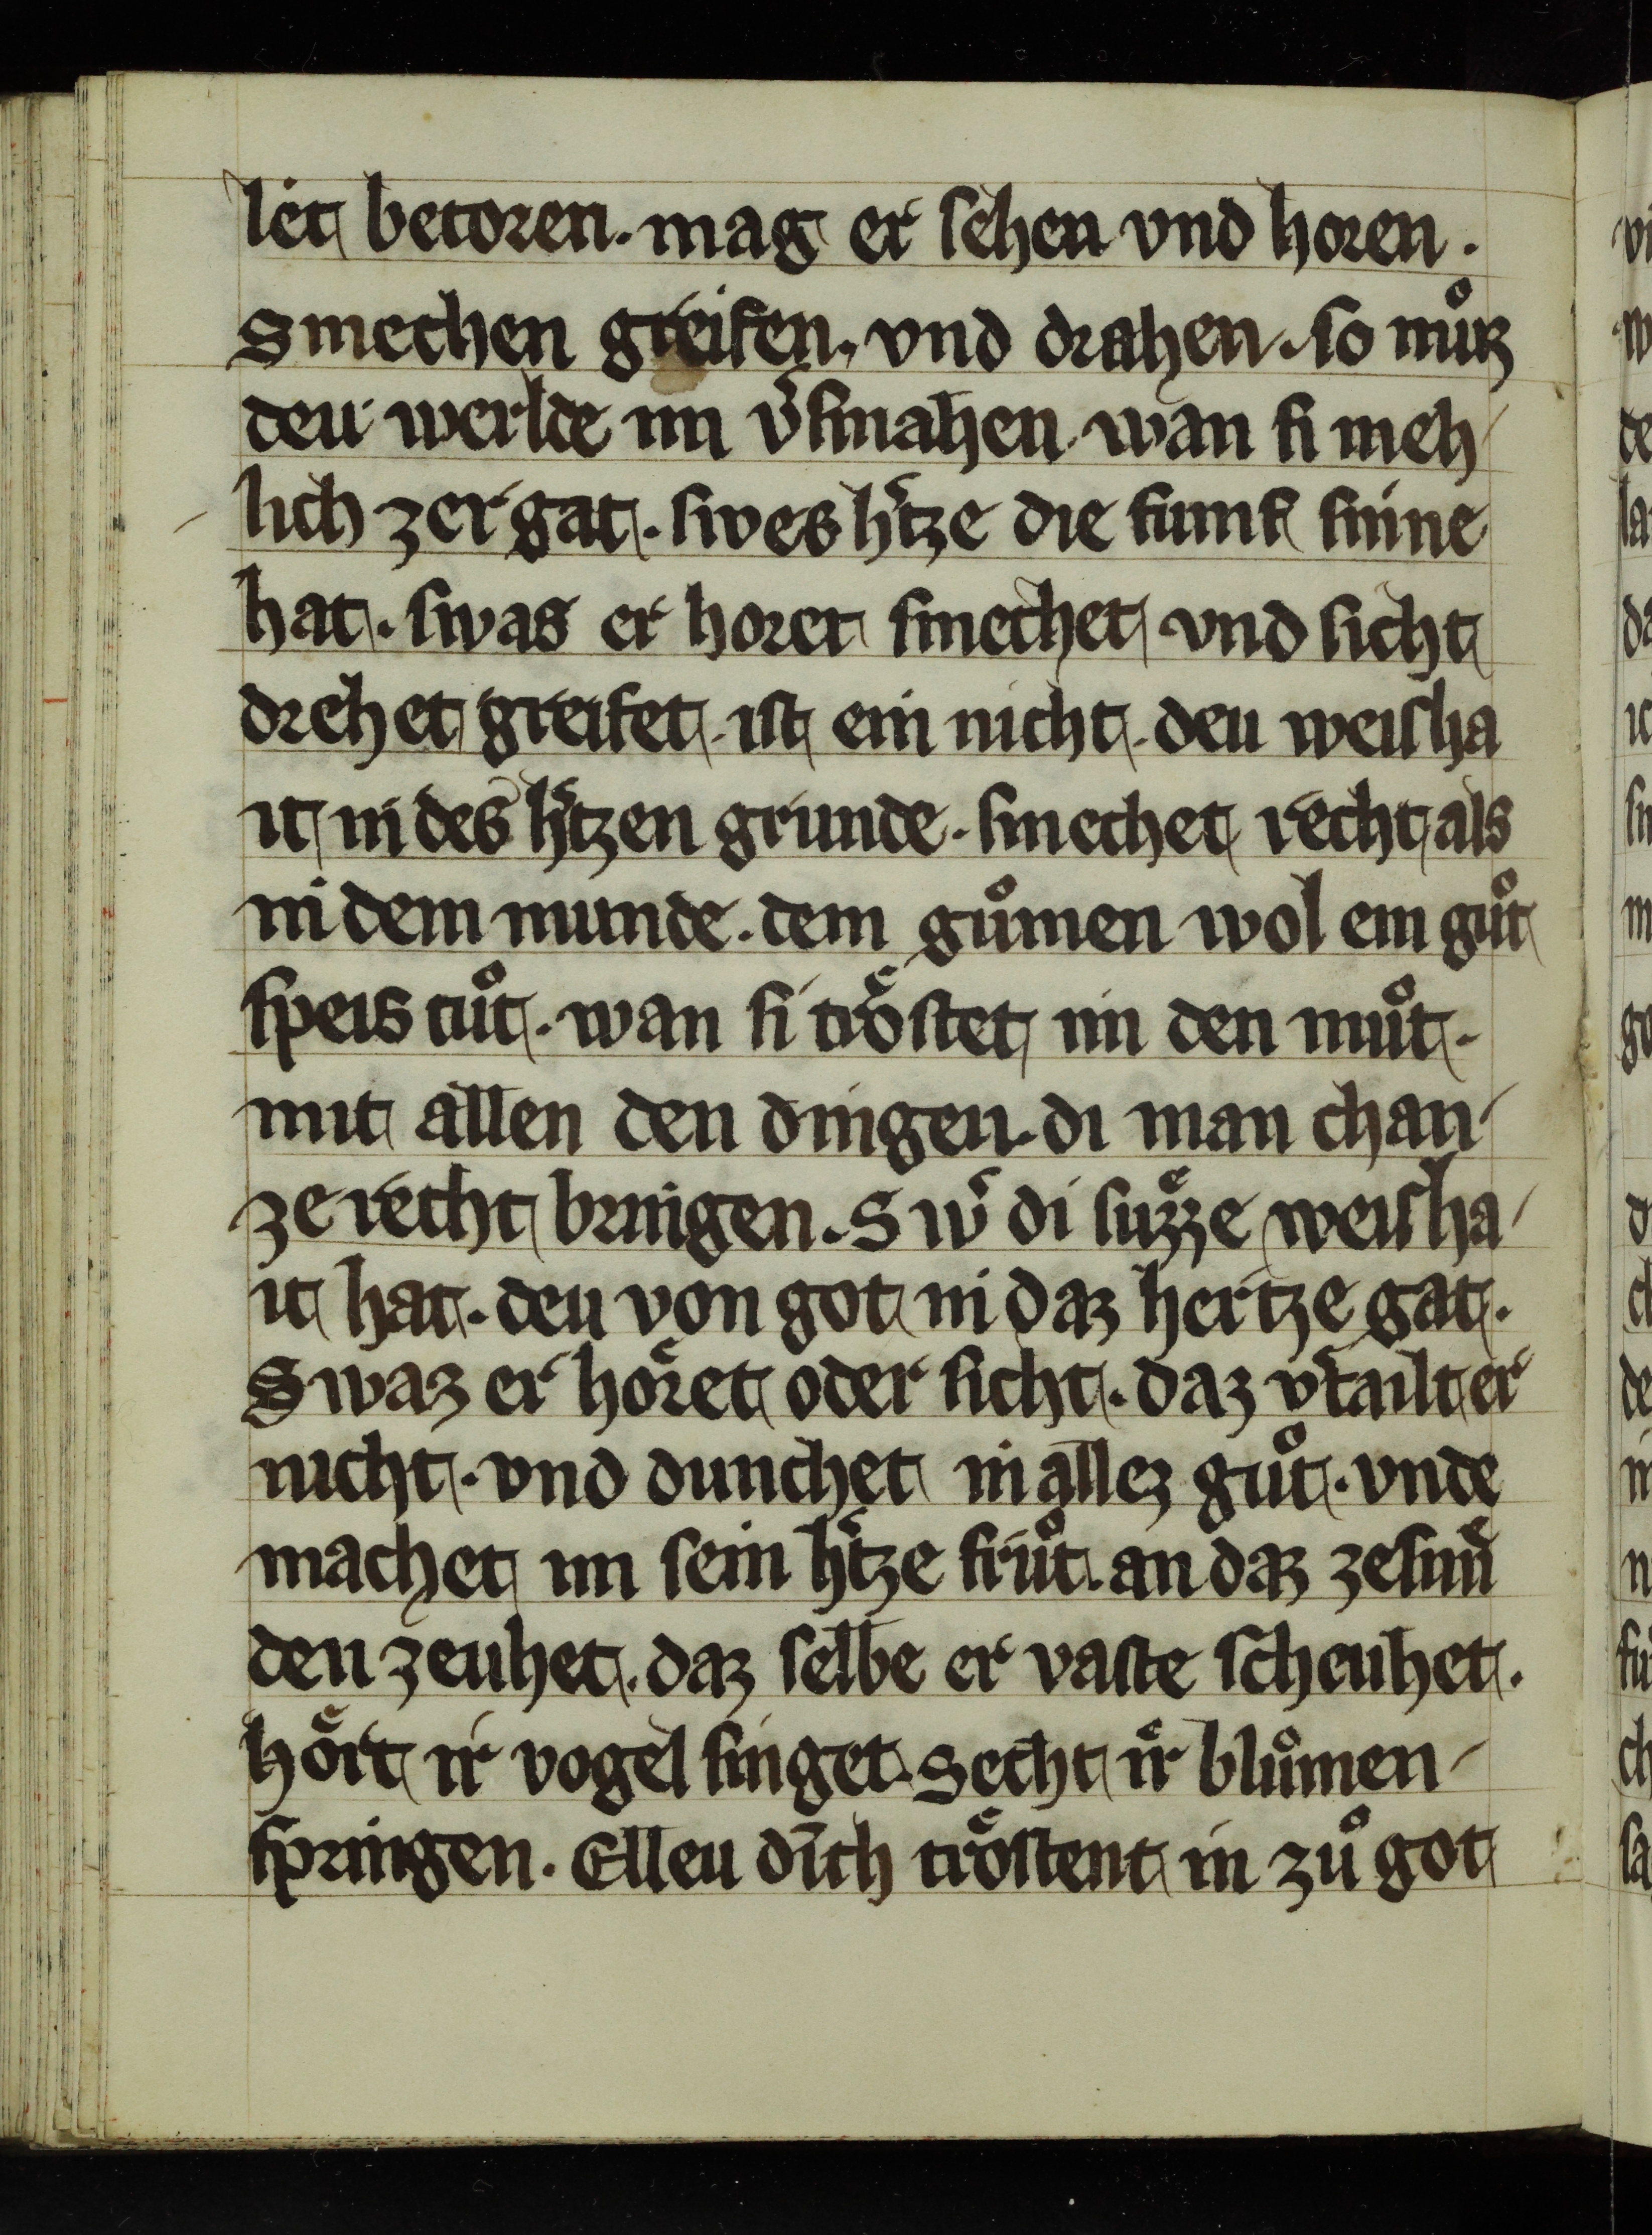 let betoren. mag er sehen vnd horen.
Smechen greifen. vnd drahen. so muͦz
deu werlde im v͛smahen. wan si nieh
lich zergat. swes h͛tze die fumf sinne
hat. swas er horet smechet vnd sicht
drehet greifet. ist ein nicht. deu weisha
it in des h͛tzen grunde. smechet recht als
in dem munde. dem guͦmen wol ein guͦt
speis tuͦt. wan si troͤstet im den muͦt.
mit allen den dingen. di man chan
ze recht bringen. Sw͛ di suͤzze weisha
it hat. deu von got in daz hertze gat.
Swaz er hoͤret oder sicht. daz v͛tailt er
nicht. vnd dunchet in allez guͦt. vnde
machet im sein h͛tze fruͦt. an daz ze sun
den zeuhet. daz selbe er vaste scheuhet.
hoͤrt ir vogel singet. Secht ir bluͦmen
springen. Elleu dich troͤstent in zuͦ got